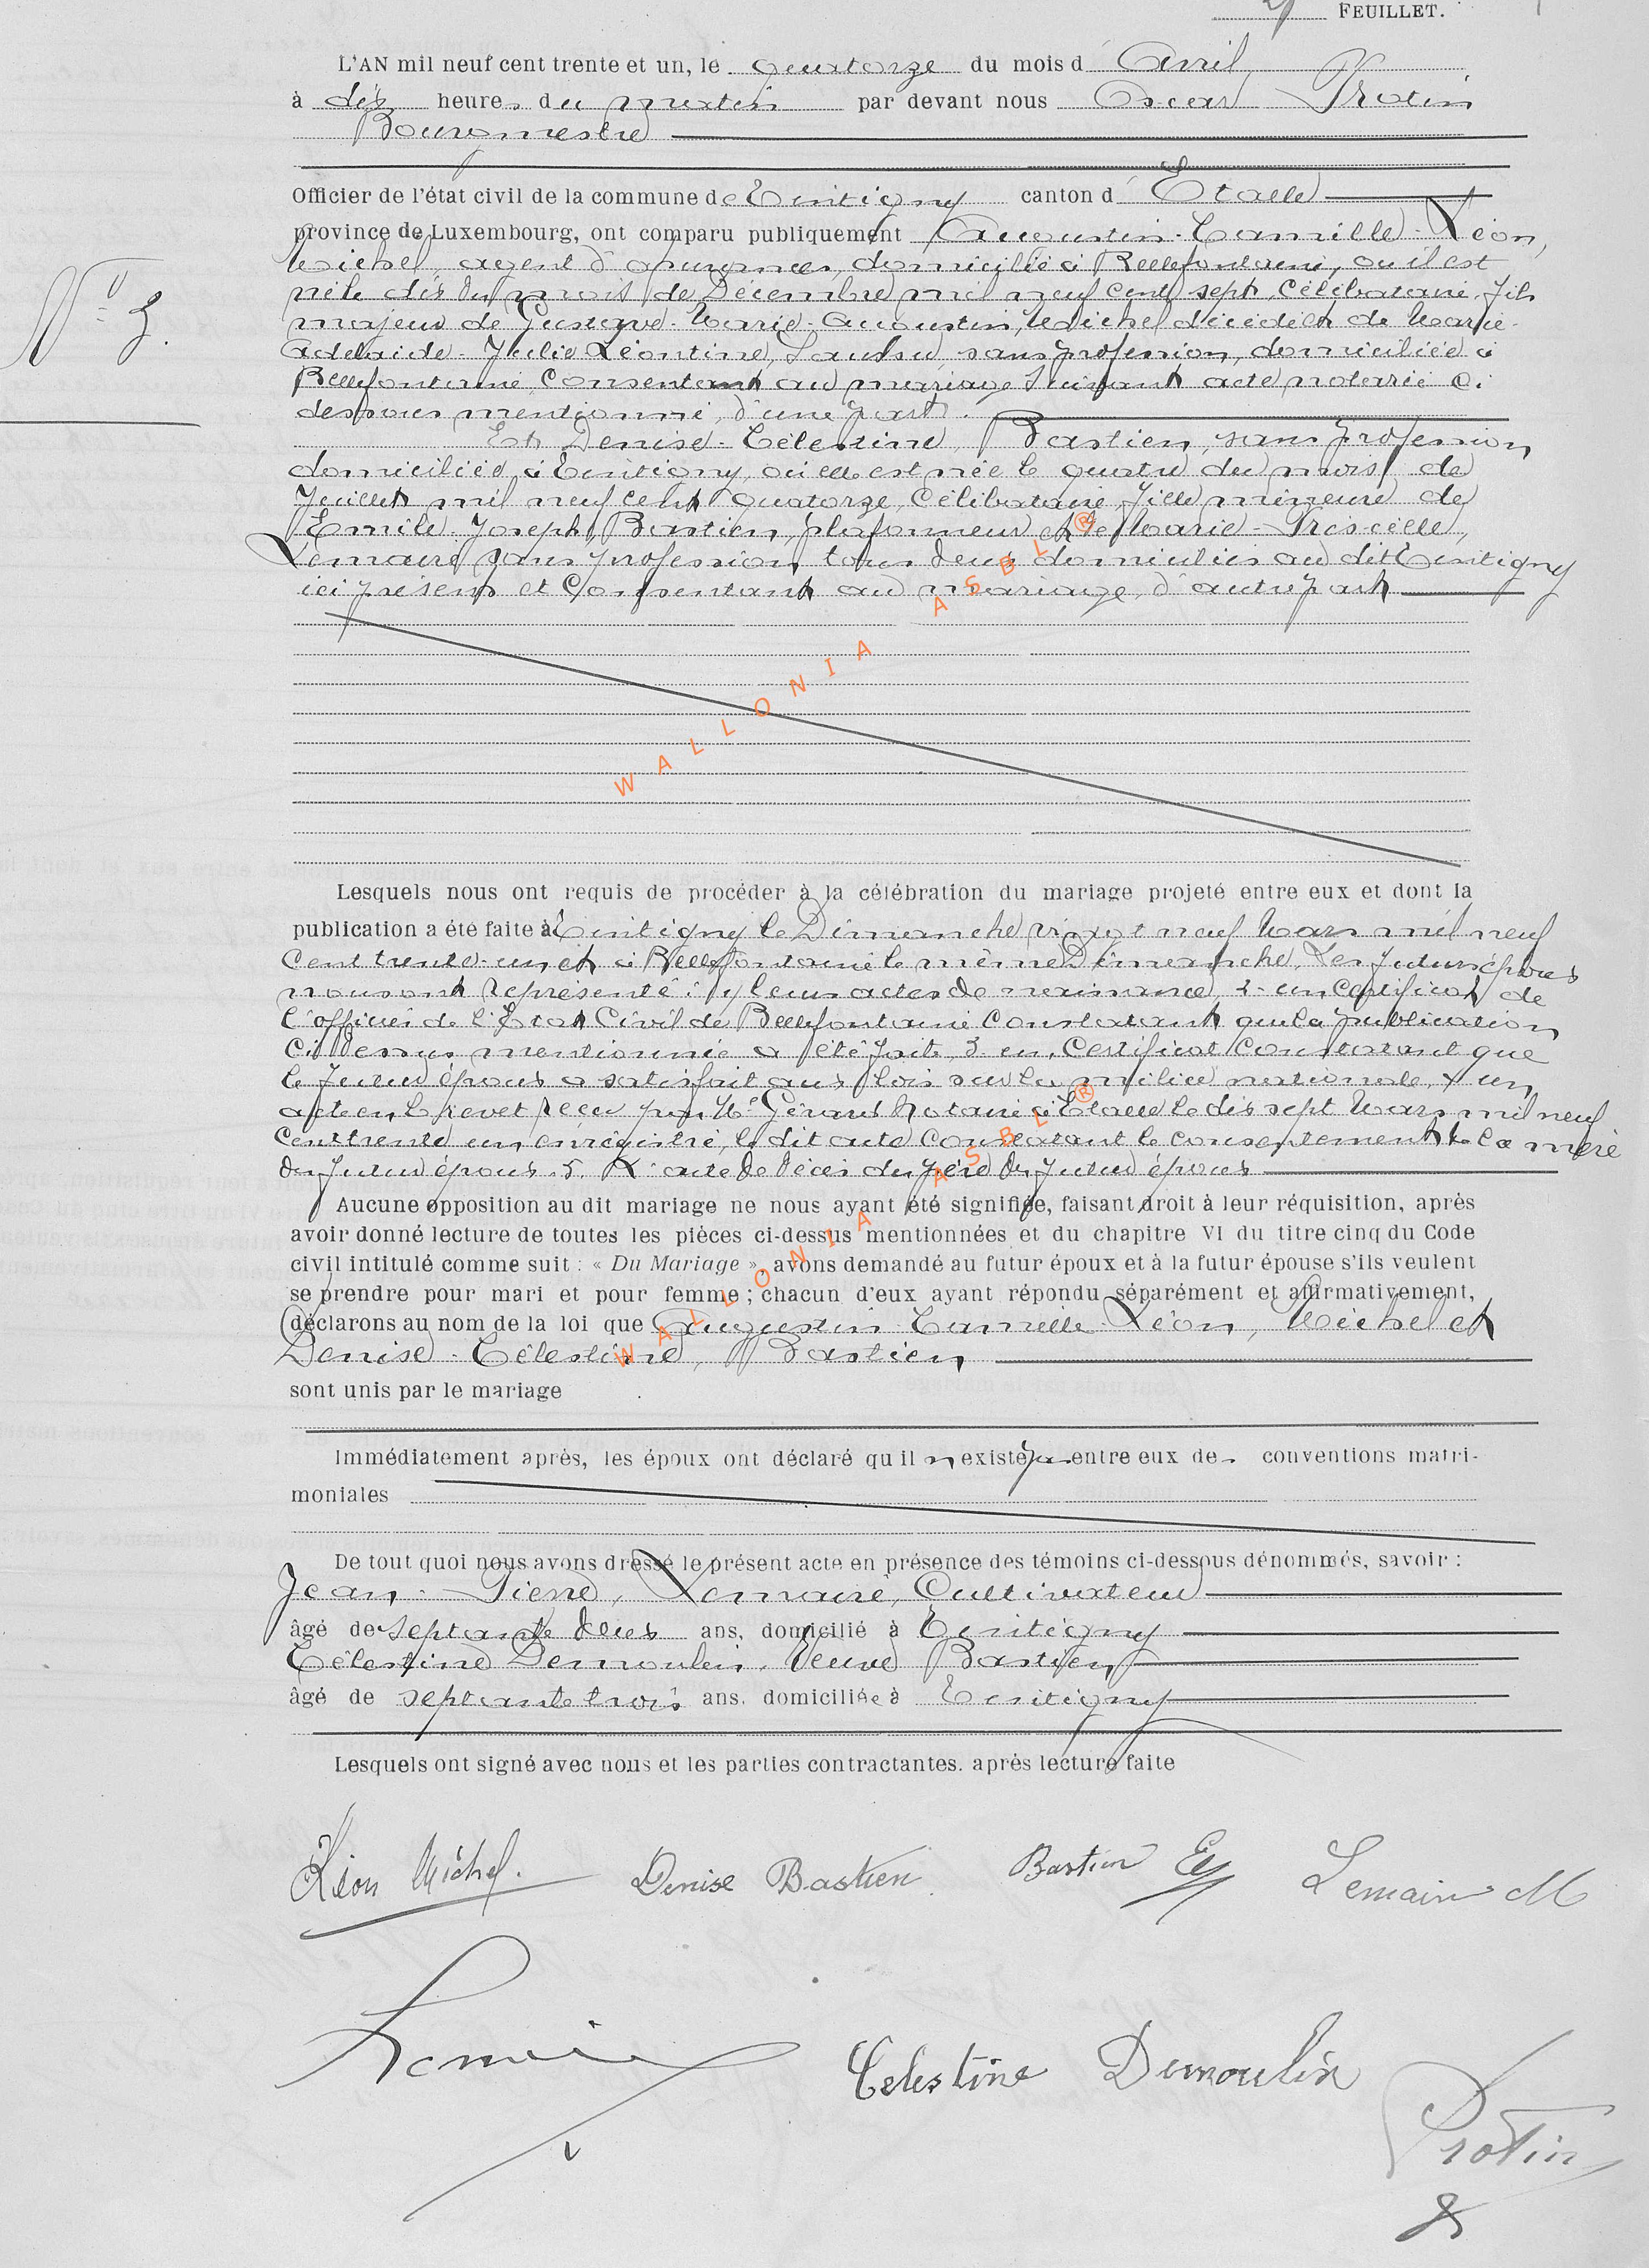 FEUILLET.
L'AN mil neuf cent trente et un, le quatorze du mois d Avril
à dix heures du matin par devant nous Oscar Protin
Bourgmestre
Officier de l'état civil de la commune de Tintigny canton d' Etalle
province de Luxembourg, ont comparu publiquement Augustin-Camille-Léon,
Michel, agent d'assurances, domicilié à Bellefontaine, où il est
né le dix du mois de Décembre mil neuf cent sept, Célibataire, fils
majeur de Gustave-Marie-Augustin, Michel décédé et de Marie-
Adelaide-Julie Léontine, sans profession, domiciliée à
Bellefontaine Consentant au mariage suivant acte notarié ci
dessous mentionné, d'une part.
Et Denise-Célestine, Bastien, sans profession
domiciliée à Tintigny, où elle est née le quatre du mois de
Juillet mil neuf cent quatorze, Célibataire, fille mineure de
Emile-Joseph, Bastien, plafonneur et de Marie-Priscille,
Lemaire sans profession tous deux domiciliés au dit Tintigny
ici présents et Consentant au mariage, d'autre part
N° 3.
WALLONIA ASBL ®
Lesquels nous ont requis de procéder à la célébration du mariage projeté entre eux et dont la
publication a été faite à Tintigny le Dimanche vingt neuf Mars mil neuf
Cent trente-un et à Bellefontaine le même Dimanche. Les futurs époux
nous ont représenté: 1) leurs actes de naissance, 2- un Certificat de
l'officier de l'Etat Civil de Bellefontaine Constatant que la publication
ci dessus mentionnée a été faite, 3- un Certificat Constatant que
le futur époux a satisfait aux lois sur la milice nationale, 4 un
acte en brevet reçu par Me Gérard Notaire à Etalle le dix sept Mars mil neuf
Cent trente un, enregistré, le dit acte Constatant le consentement de la mère
du futur époux 5. L'acte de décès du père du futur époux
Aucune opposition au dit mariage ne nous ayant été signifiée, faisant droit à leur réquisition, après
avoir donné lecture de toutes les pièces ci-dessus mentionnées et du chapitre VI du titre cinq du Code
civil intitulé comme suit : « Du Mariage », avons demandé au futur époux et à la futur épouse s'ils veulent
se prendre pour mari et pour femme ; chacun d'eux ayant répondu séparément et affirmativement,
déclarons au nom de la loi que Augustin-Camille-Léon, Michel et
Denise-Célestine, Bastien
sont unis par le mariage
WALLONIA ASBL ®
Immédiatement après, les époux ont déclaré qu il n existe pas entre eux de conventions matri-
moniales
De tout quoi nous avons dressé le présent acte en présence des témoins ci-dessous dénommés, savoir :
Jean-Pierre, Lemaire, Cultivateur
âgé de septante deux ans, domicilié à Tintigny
Célestine Demoulin, Veuve Bastien
âgé de septante trois ans, domiciliée à Tintigny
Lesquels ont signé avec nous et les parties contractantes. après lecture faite
Léon Michel. Denise Bastien Bastien E Lemaire M
Lemaire Celestine Demoulin
Protin